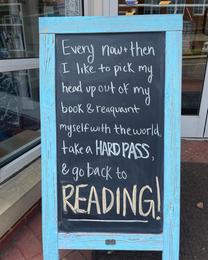 Every now + then
I like to pick my
head up out of my
book & reaquaint
myself with the world,
take a HARD PASS,
& go back to
READING!